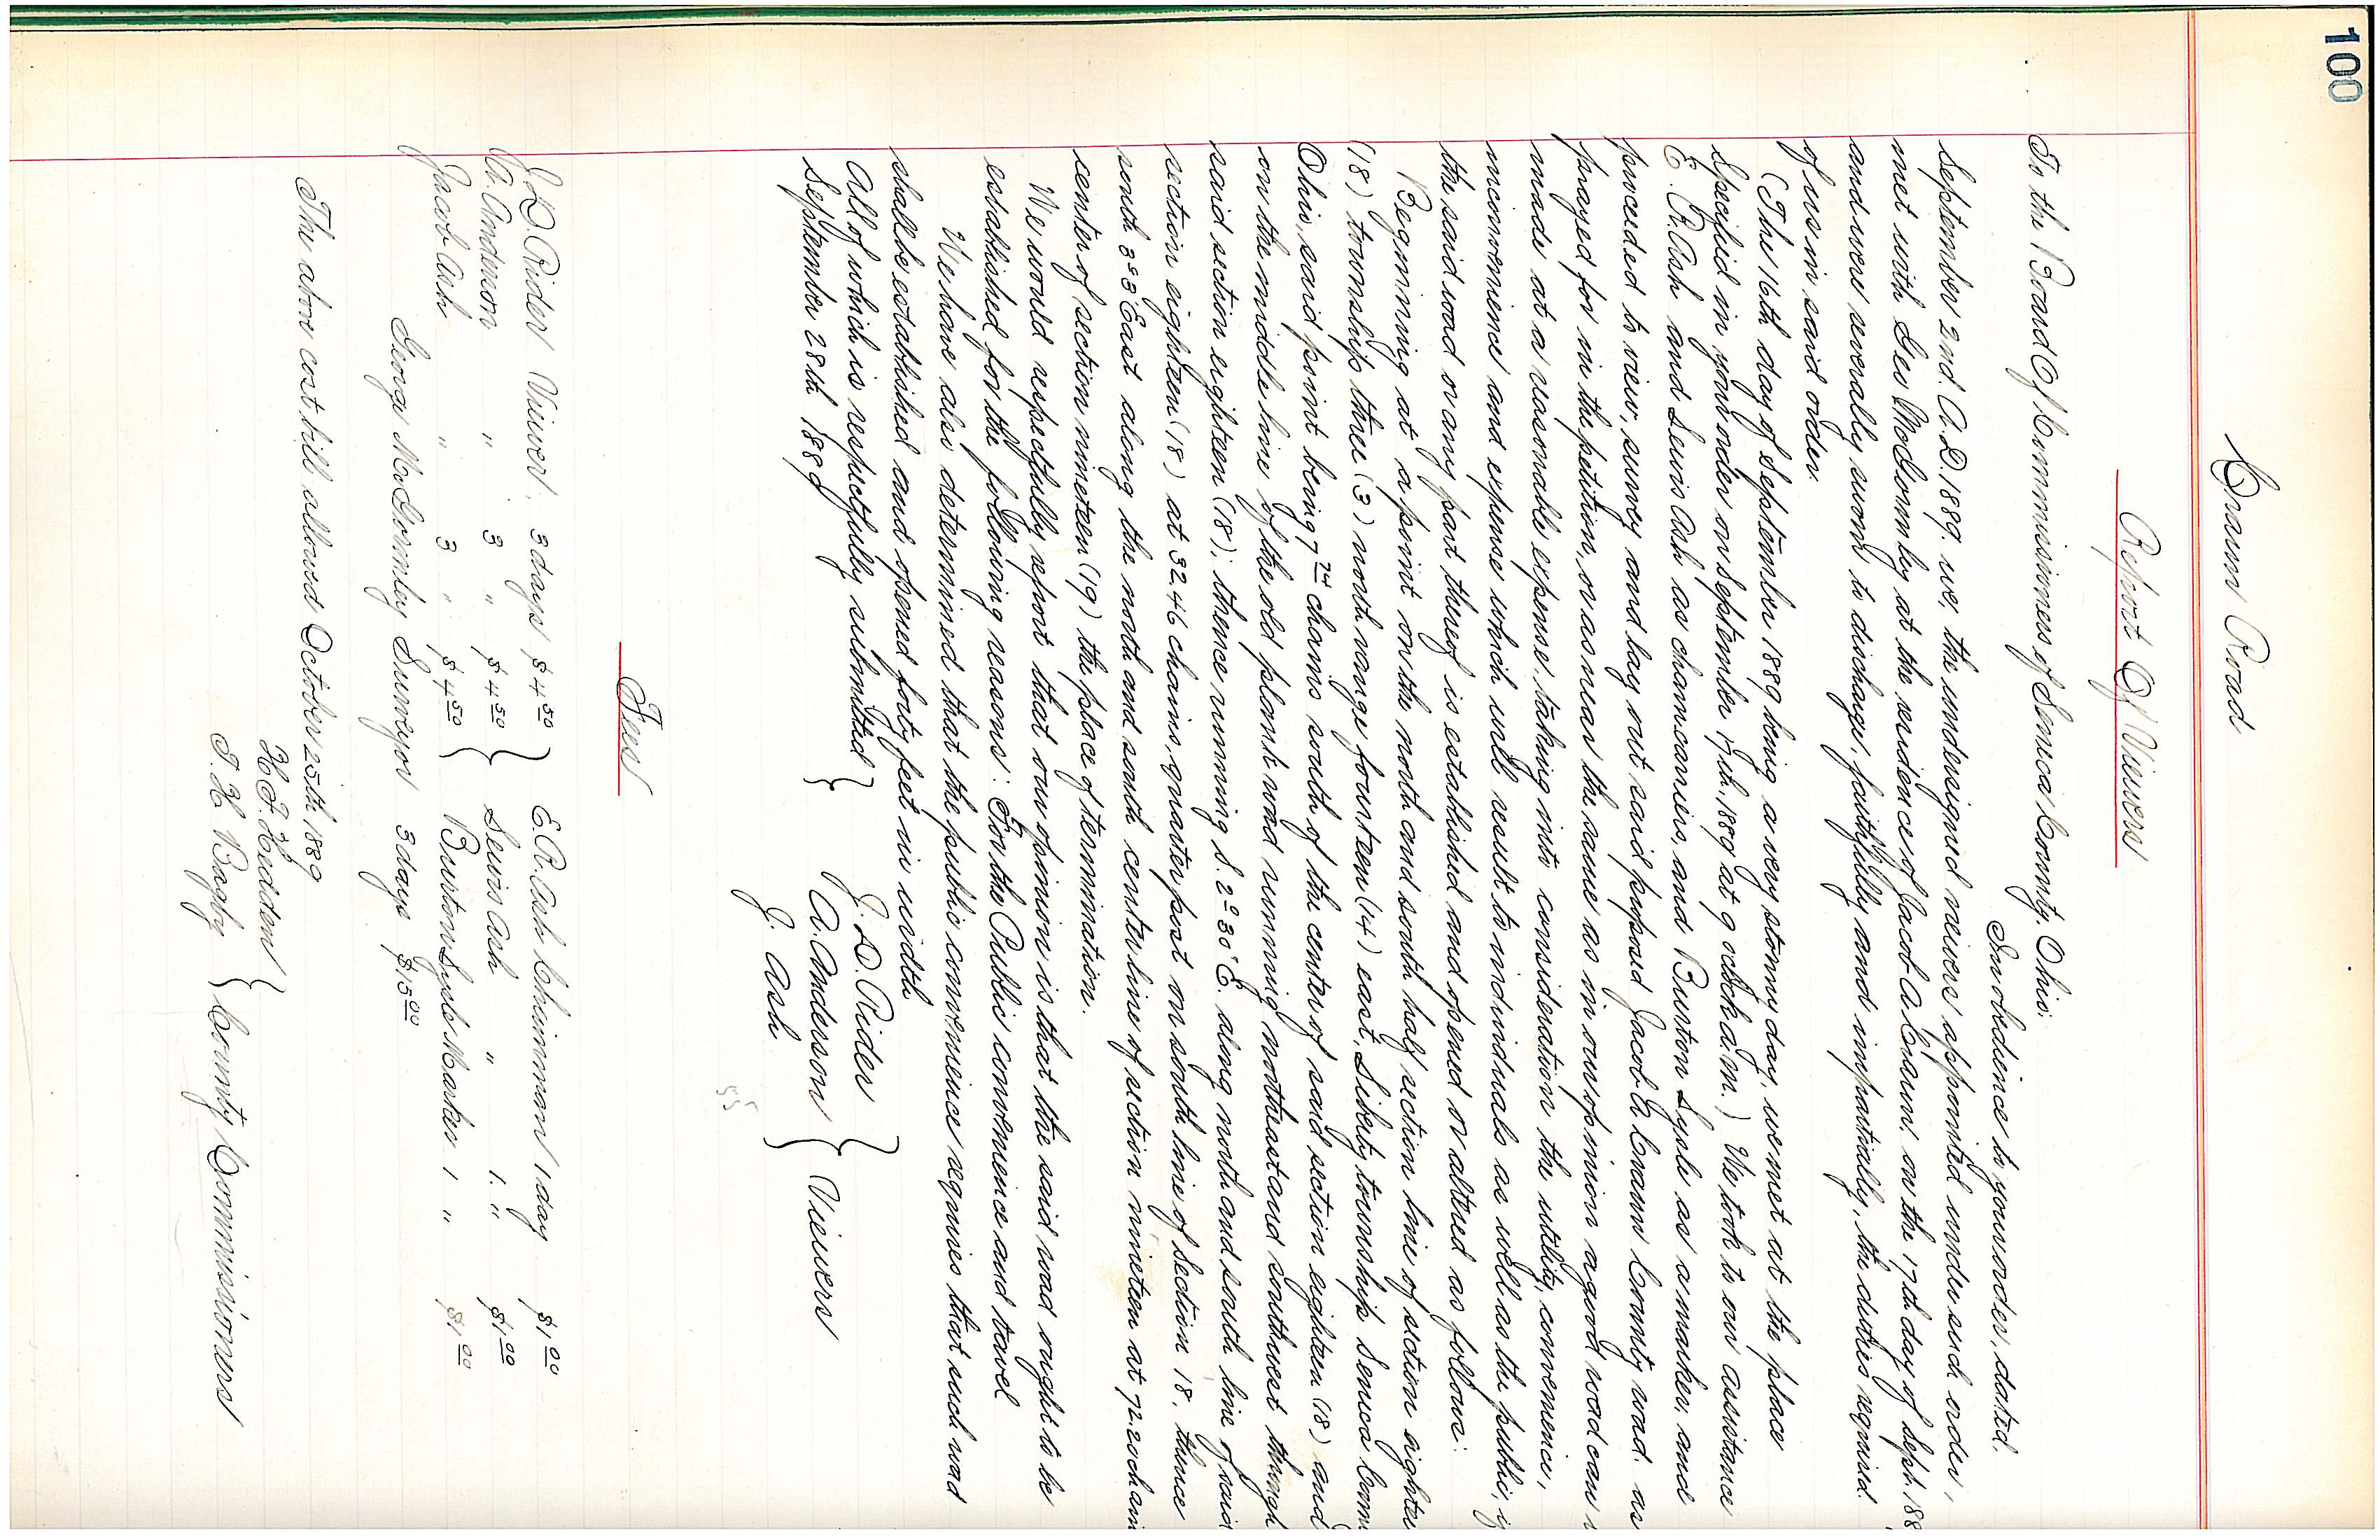 100
Craun Road
Report Of Viewers
To the Board Of Commissioners of Seneca County, Ohio:
In obedience to your order, dated.
September 2nd. A.D. 1889. we, the undersigned viewers appointed under said order,
met with Geo McGormley at the residence of Jacob A Craun, on the 17th day of Sept. 188
and were severally sworn to discharge, faithfully and impartially, the duties required
of us in said order.
(The 16th day of September 1889 being a very stormy day, we met at the place
Specified in your order on September 17th, 1889 at 9 oclock a.m.) We took to our assistance
E. R. Ash and Lewis Ash as chaincarriers, and Burton Syple as a marker, and
proceeded to view, survey and lay out said proposed Jacob A Craun County road. as
prayed for in the petition, or as near the same as in our opinion a good road can
made at a reasonable expense, taking into consideration the utility, convenience,
inconvenience and expense which will result to individuals as well as the public, if
the said road or any part thereof is established and opened or altered as follows:
Beginning at a point on the north and south half section line of section eightee
(18) township three (3) north range fourteen (14) east, Liberty township Seneca Coun
Ohio, said point being 7 24 chains south of the center of said section eighteen (18) and
on the middle line of the old plank road running northeast and southwest through
said section eighteen (18); thence running S. 2° 30' E. along north and south line of said
section eighteen (18) at 32.46 chains, quarter post on south line of Section 18, thence
south 3° 3 East along the north and south center line of section nineteen at 72.20 chain
center of section nineteen (19) the place of termination.
We would respectfully report that our opinion is that the said road ought to be
established for the following reasons: For the Public convenience and travel
We have also determined that the public convenience requires that such road
shall be established and opened forty feet in width
All of which is respectfully submitted } J. D. Rider }
September 28th 1889 A. Anderson } Viewers
J. Ash
Fees
J. D. Rider Viewer. 3 days $4 50 } E. R. Ash Chainman 1 day $1 00
A. Anderson " 3 " $4 50 } Lewis Ash " 1. " $1 00
Jacob Ash " 3 " $4 50 } Burton Syple Marker 1 " $1 00
George McGormley Surveyor 3 days $15 00
The above cost bill allowed October 25th 1889
H. F. Hedden }
T. H. Bagby } County Commissioners